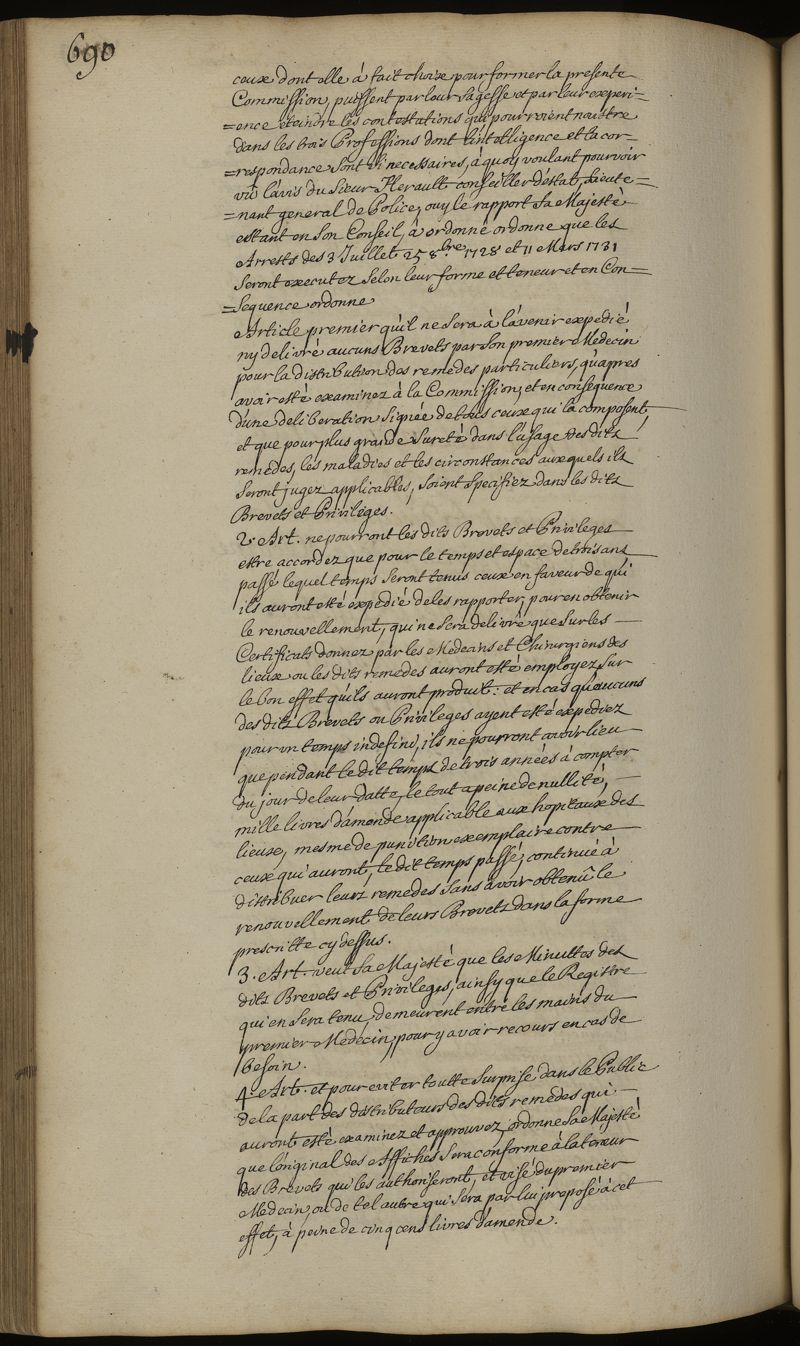 690
ceux dont elle à fait choix pour former la presente
Commission, puissent par leur sagesse et par leur experi=
=ence eteindre les contestations qui pourroient naistre
dans les trois Professions dont l'intelligence et la cor=
=respondance sont si necessaires, à quoy voulant pourvoir
vû l'avis du Sieur Herault conseiller d'estat, Lieute=
=nant general de Police, ouy le rapport Sa Majesté
estant en son Conseil, à ordonné ordonne que les
Arrests des 3 Juillet 25 8.bre 1728 et 11 Mars 1731
seront executez selon leur forme et teneur et en Con=
=sequence ordonne
Article premier qu'il ne sera à l'avenir expedié
ny delivré aucuns Brevets par son premier Medecin
pour la distribution des remedes particuliers, qu'apres
avoir esté examinez à la Commission, et en consequence
d'une deliberation signée de tous ceux qui la composent,
et que pour plus grande sureté dans l'usage des dits
remedes, les maladies et les circonstances auxquels ils
seront jugez applicables, soient specifiez dans les dits
Brevets et Privileges.
2. Art. ne pourront les dits Brevets et Privileges
estre accordez que pour le temps et espace de trois ans
passé lequel temps seront tenus ceux en faveur de qui
ils auront esté expedié de les rapporter, pour en obtenir
le renouvellement, qui ne sera delivré que sur les
Certificats donnez par les Medecins et Chirurgiens des
lieux ou les dits remedes auront esté employez sur
le bon effet qu'ils auront produit: et en cas qu'aucuns
des dits Brevets ou Privileges ayent esté expediez
pour un temps indefini, ils ne pourront avoir lieu
que pendant le dit temps de trois années à compter
du jour de leur datte, le tout a peine de nullité,
mille livres d'amende applicable aux hopitaux des
lieux, mesme de punition exemplaire contre
ceux qui auront, le dit temps passé, continué à
distribuer leurs remedes sans avoir obtenû le
renouvellement de leurs Brevets dans la forme
prescritte cy dessus.
3. Art. veut Sa Majesté que les Minuttes des
dits Brevets et Privileges, ainsy que le Registre
qui en sera tenu, demeurent entre les mains du
premier Medecin, pour y avoir recours en cas de
besoin.
4. Art. et pour eviter toutte surprise dans le Public
de la part des distributeurs des dits remedes qui
auront esté examinez et approuvez, ordonne Sa Majesté
que l'original des Affiches sera conforme à la teneur
des Brevets qui les authoriseront, et visé du premier
Medecin, ou de tel autre qui sera par lui preposé à cet
effet, à peine de cinq cens livres d'amende.